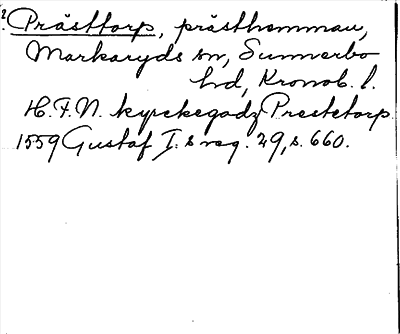 ? Prästtorp, prästhemman,
Markaryds sn, Sunnerbo
hd, Kronob. l.
H.F.N. kyrckegodz Prestetorp
1559 Gustaf I:s reg. 29, s. 660.